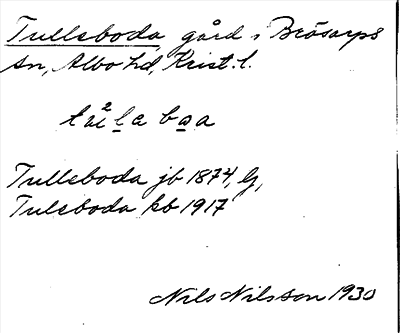 Tulleboda gård i Brösarps
sn, Albo hd, Krist. l.
Tulleboda jb 1874, G,
Tuleboda kb 1917
Nils Nilsson 1930